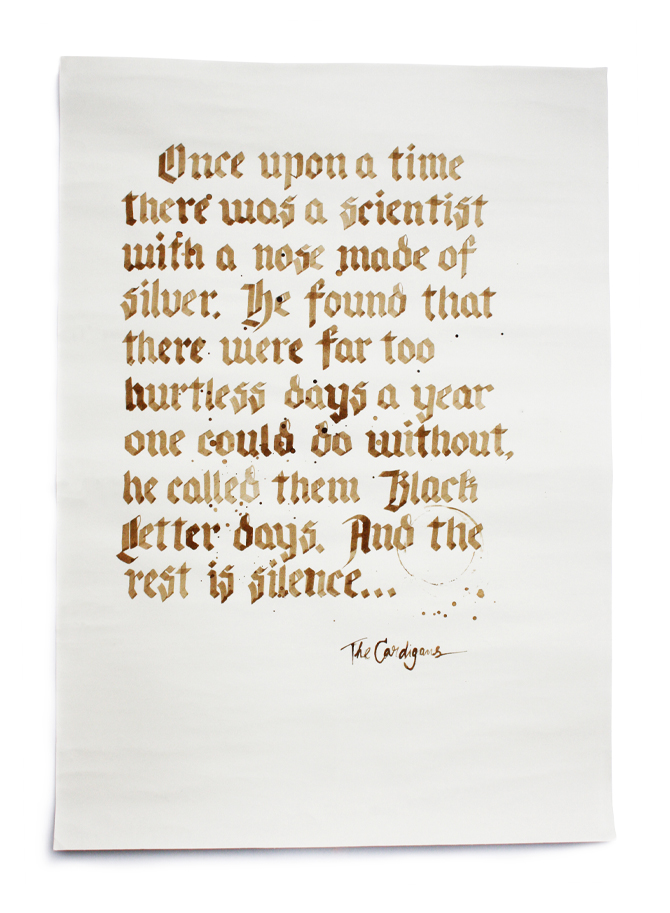 Once upon a time
there was a scientist
with a nose made of
silver. He found that
there were far too
hurtless days a year
one could do without,
he called them Black
Letter days. And the
rest is silence...
The Cardigans